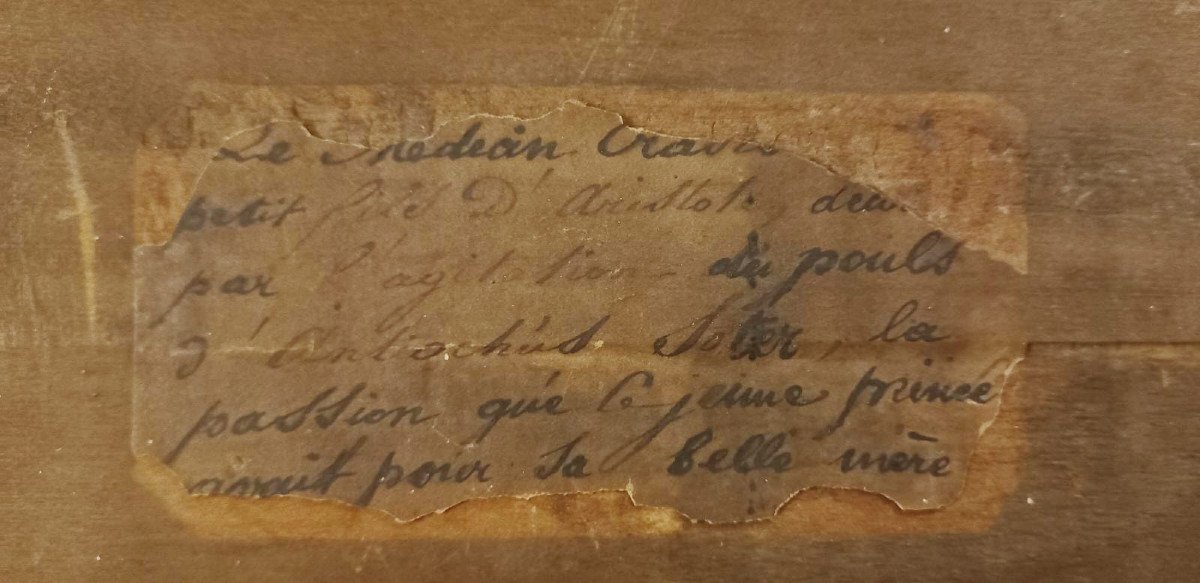 Le Medecin
petit fils D'Aristote, de
par l'agitation du pouls
d'Antiochus Soter, la
passion que le jeune prince
avait pour sa belle mère